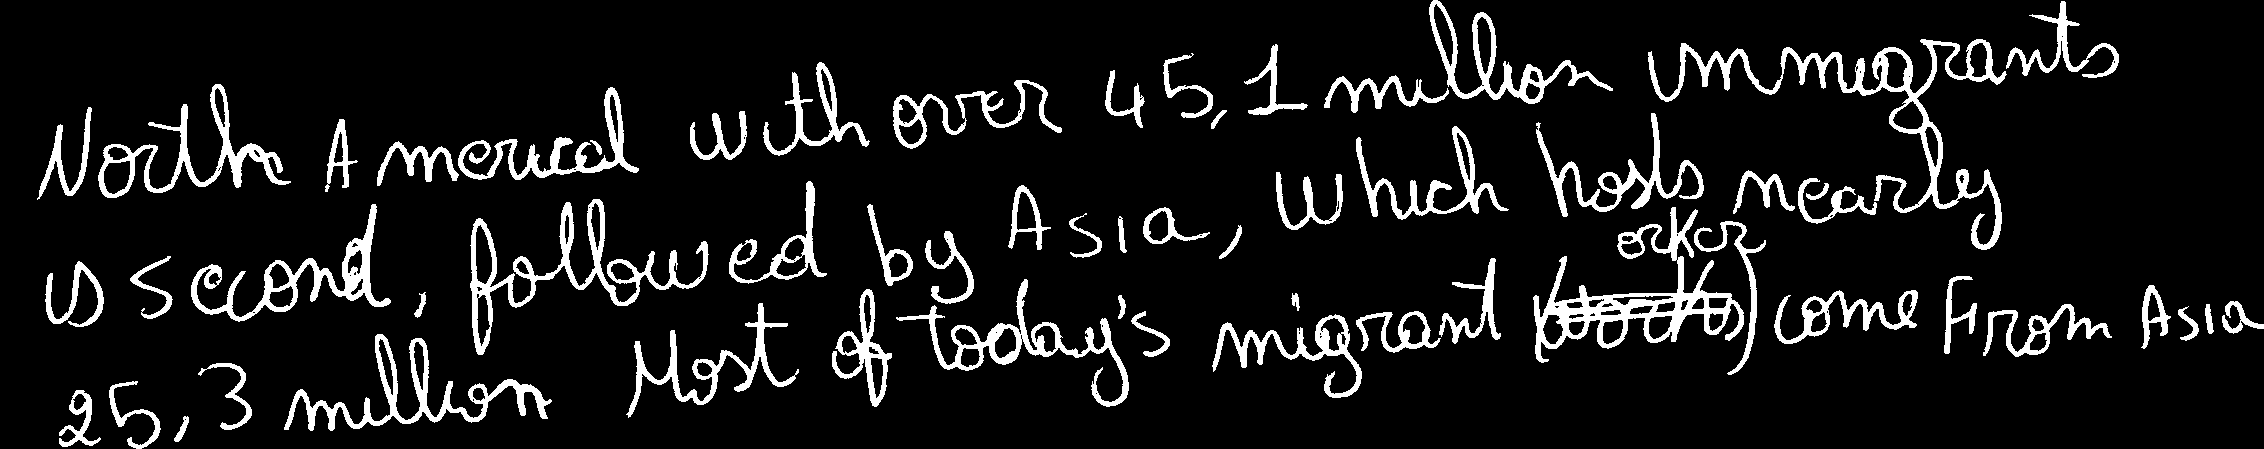 North Americal with over 45,1 million immigrants
is second, followed by Asia, which hosts nearly
25,3 million Most of today's migrant orker come From Asia